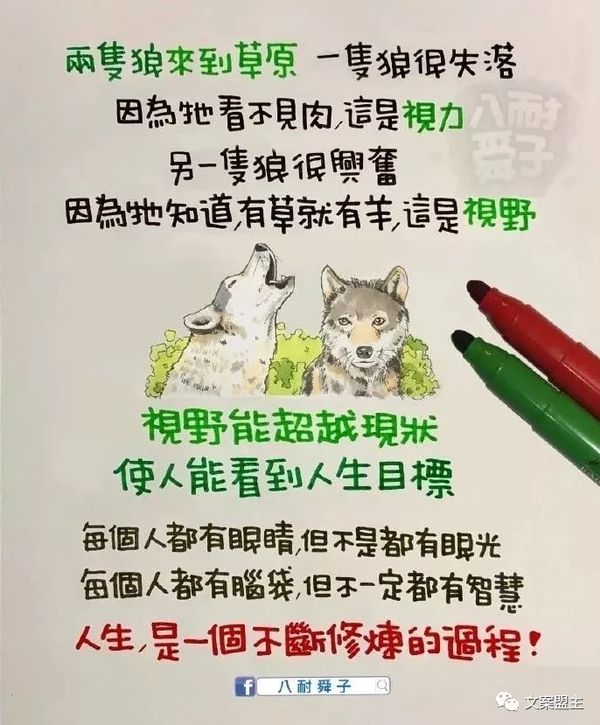 兩隻狼來到草原 一隻狼很失落
因為牠看不見肉,這是視力
另一隻狼很興奮
因為牠知道,有草就有羊,這是視野
視野能超越現狀
使人能看到人生目標
每個人都有眼睛,但不是都有眼光
每個人都有腦袋,但不一定都有智慧
人生,是一個不斷修煉的過程!
八耐舜子
f 八耐舜子
文案盟主